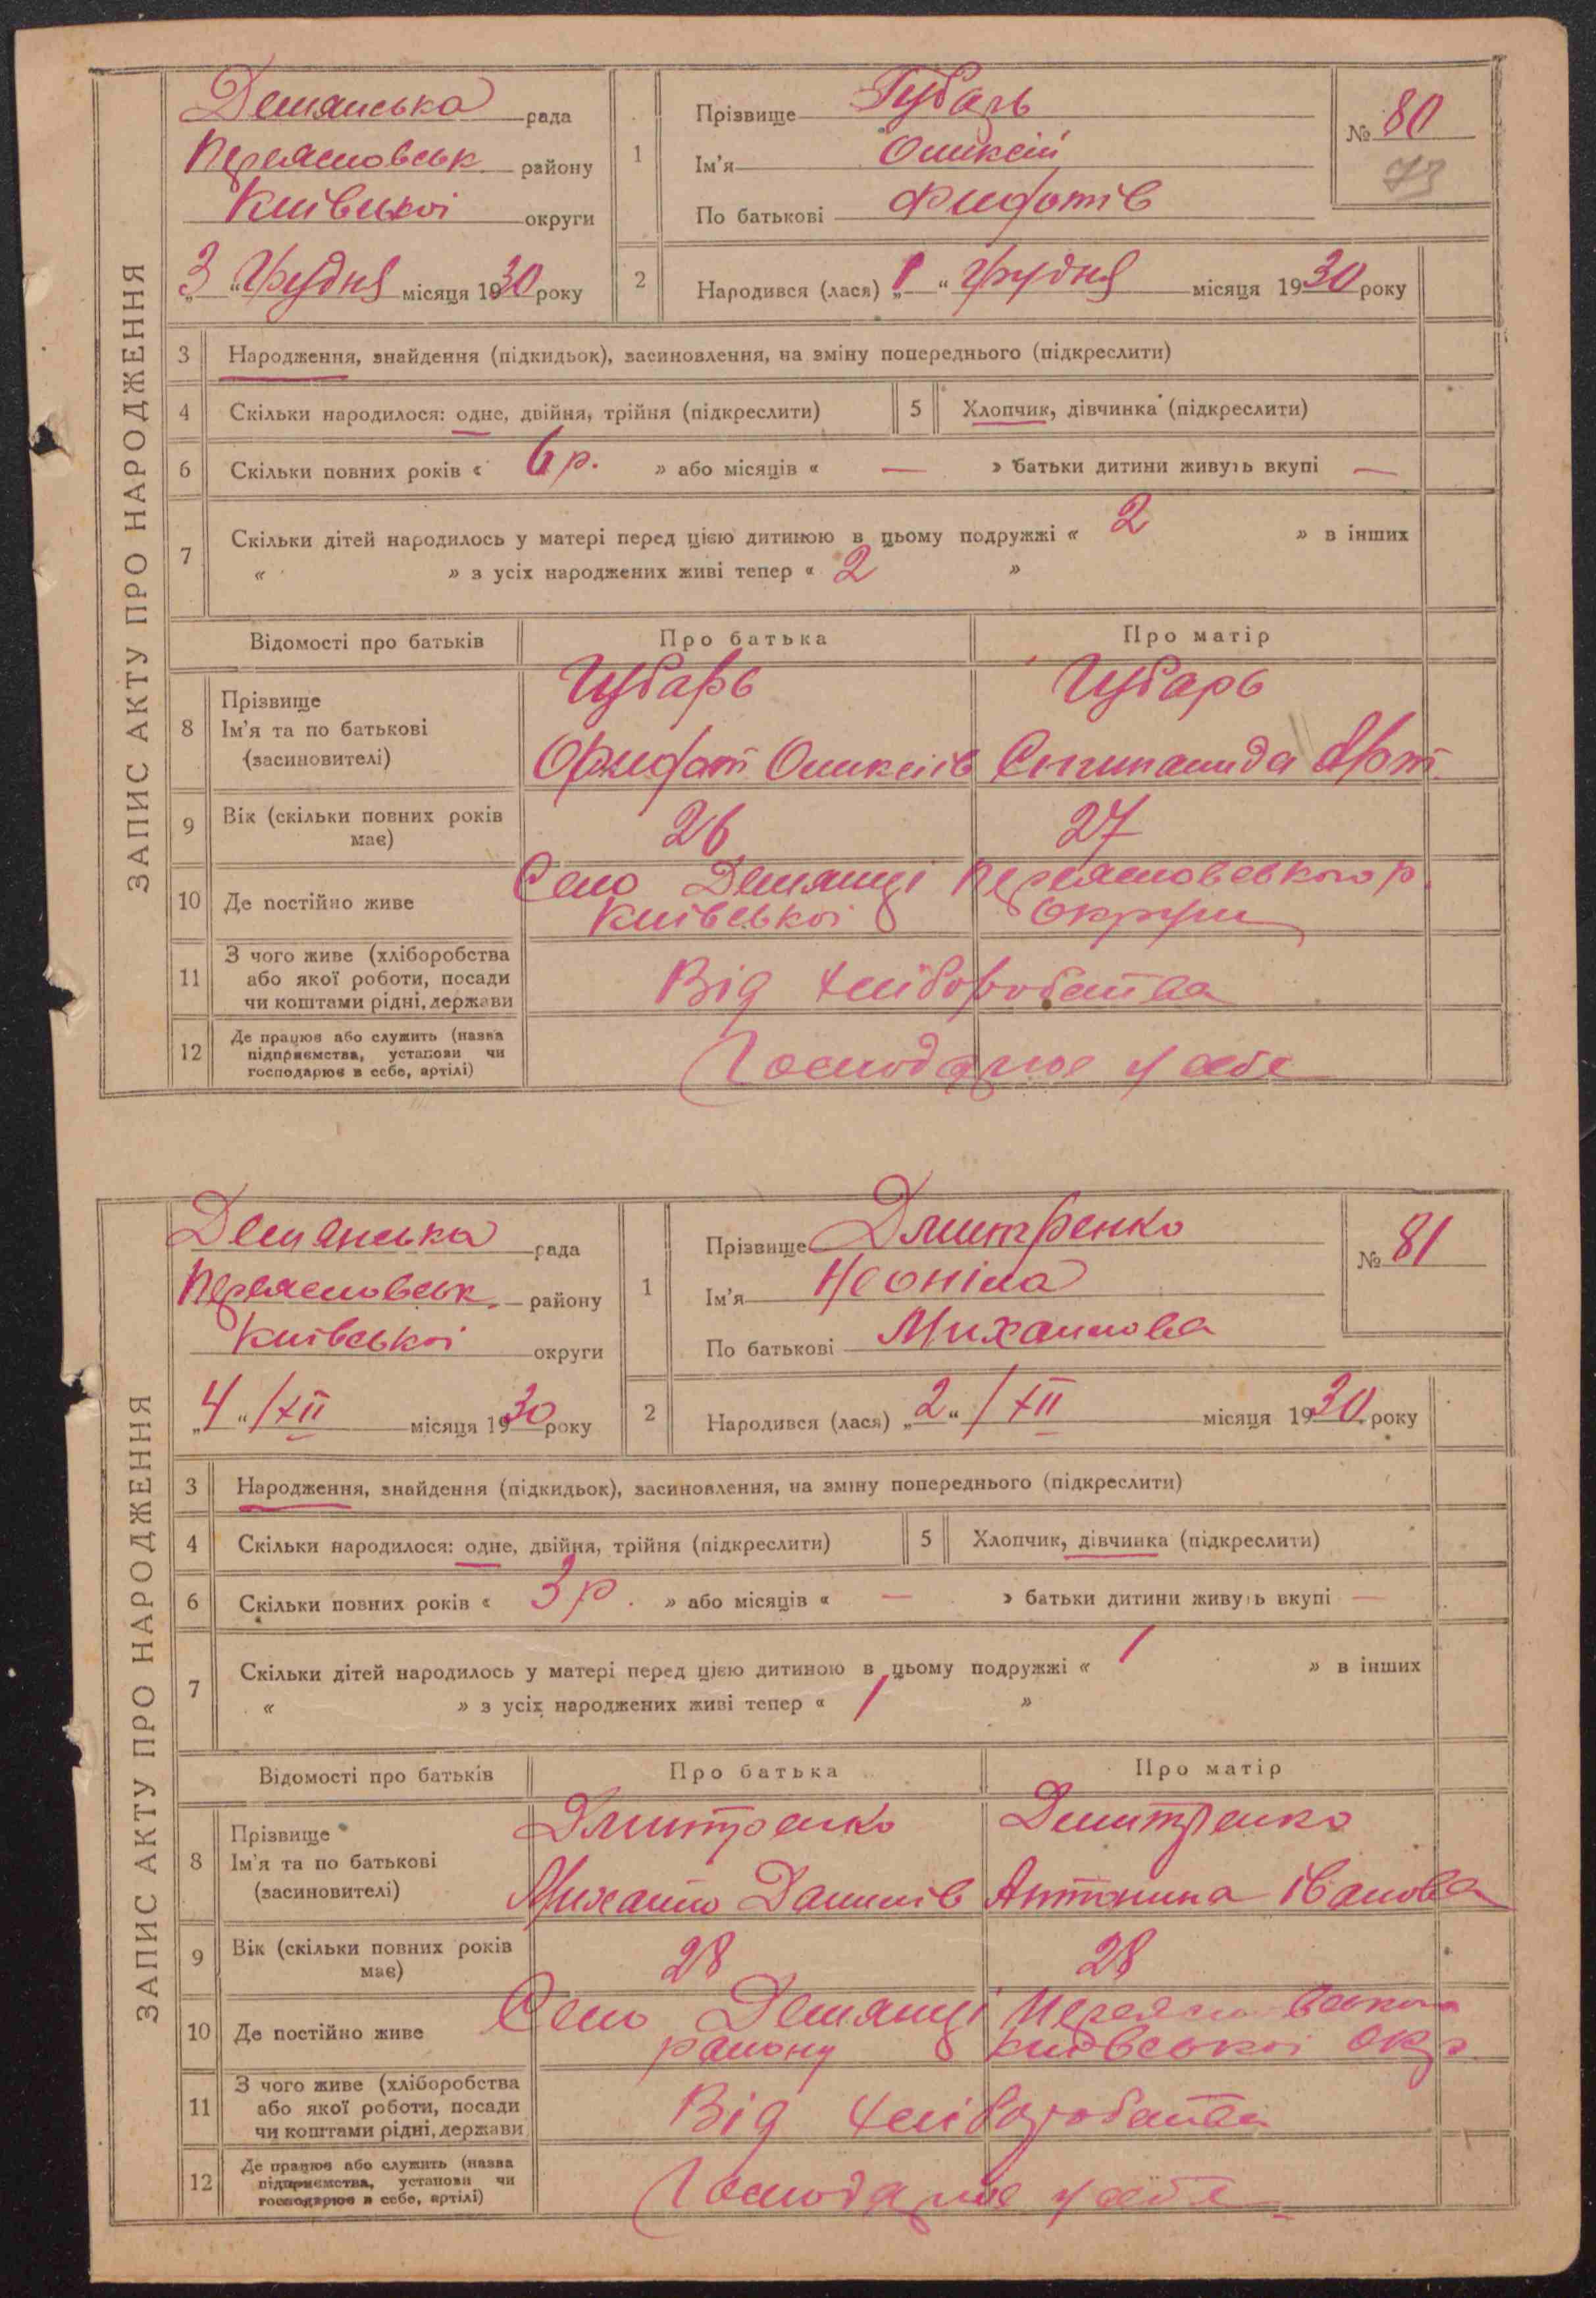 ЗАПИС АКТУ ПРО НАРОДЖЕННЯ
Демянська рада
Переяславськ. району
Київської округи
„3“ Грудня місяця 1930 року
1
Прізвище Губарь
Ім'я Олексій
По батькові Федотів
№ 80
73
2 Народився (лася) „1“ грудня місяця 1930 року
3 Народження, знайдення (підкидьок), засиновлення, на зміну попереднього (підкреслити)
4 Скільки народилося: одне, двійня, трійня (підкреслити)
5 Хлопчик, дівчинка (підкреслити)
6 Скільки повних років « 6 р. » або місяців « — » батьки дитини живуть вкупі —
7 Скільки дітей народилось у матері перед цією дитиною в цьому подружжі « 2 » в інших
« » з усіх народжених живі тепер « 2 »
Відомості про батьків Про батька Про матір
8 Прізвище
Ім'я та по батькові
(засиновителі)
Губарь Губарь
Федот Олексіїв Степанида Арт.
9 Вік (скільки повних років має) 26 27
10 Де постійно живе Село Демянці Переяславського р.
Київської Округи
11 З чого живе (хліборобства
або якої роботи, посади
чи коштами рідні, держави
Від хліборобства
12 Де працює або служить (назва
підприємства, установи чи
господарює в себе, артілі)
Господарює у себе
ЗАПИС АКТУ ПРО НАРОДЖЕННЯ
Демянська рада
Переяславськ. району
Київської округи
„4“/XII місяця 1930 року
1
Прізвище Дмитренко
Ім'я Неоніла
По батькові Михайлова
№ 81
2 Народився (лася) „2“/XII місяця 1930 року
3 Народження, знайдення (підкидьок), засиновлення, на зміну попереднього (підкреслити)
4 Скільки народилося: одне, двійня, трійня (підкреслити)
5 Хлопчик, дівчинка (підкреслити)
6 Скільки повних років « 3 р. » або місяців « — » батьки дитини живуть вкупі —
7 Скільки дітей народилось у матері перед цією дитиною в цьому подружжі « 1 » в інших
« » з усіх народжених живі тепер « 1 »
Відомості про батьків Про батька Про матір
8 Прізвище
Ім'я та по батькові
(засиновителі)
Дмитренко Дмитренко
Михайло Данилів Антонина Іванова
9 Вік (скільки повних років має) 28 28
10 Де постійно живе Село Демянці Переяславського
району Київської Окр.
11 З чого живе (хліборобства
або якої роботи, посади
чи коштами рідні, держави
Від хліборобства
12 Де працює або служить (назва
підприємства, установи чи
господарює в себе, артілі)
Господарює у себе